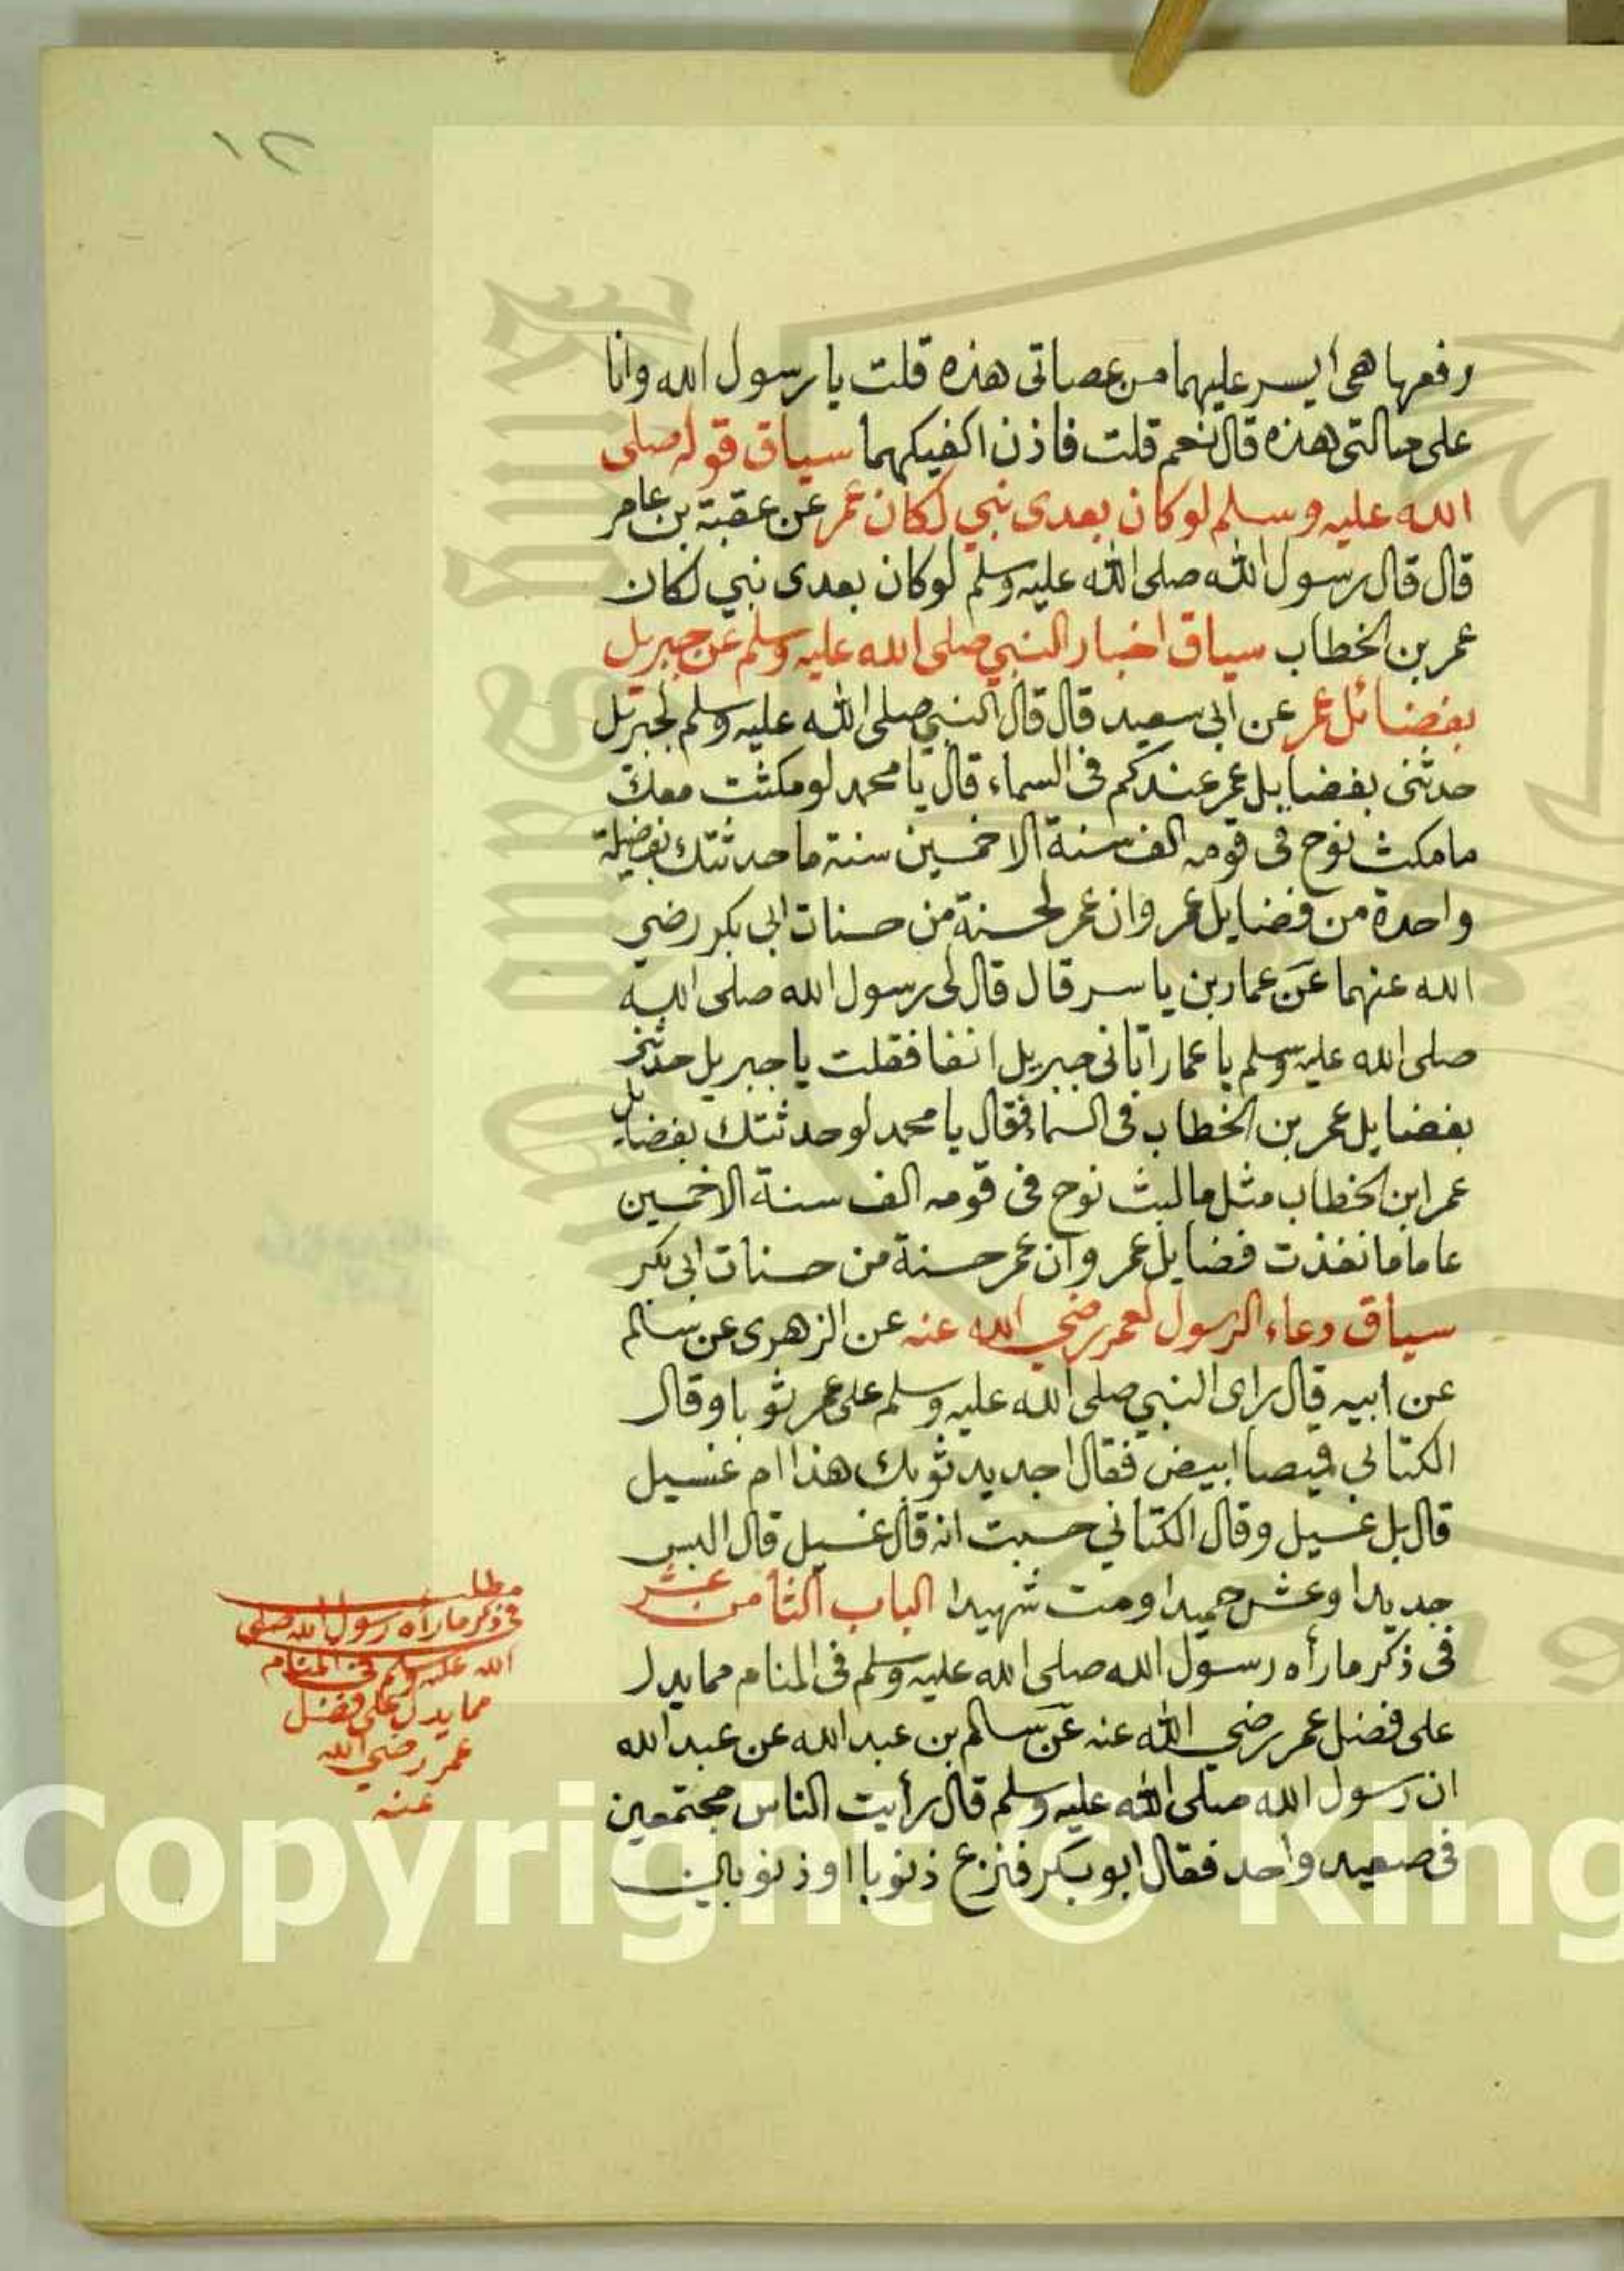 ١٢
رفعها هى ايسر عليهما من عصاتى هذه قلت يا رسول الله وانا
على حالتى هذه قال نعم قلت فاذن اكفيكهما سياق قوله صلى
الله عليه وسلم لو كان بعدى نبي لكان عمر عن عقبة بن عامر
قال قال رسول الله صلى الله عليه وسلم لو كان بعدى نبي لكان
عمر بن الخطاب سياق اخبار النبي صلى الله عليه وسلم عن جبريل
بفضائل عمر عن ابى سعيد قال قال النبي صلى الله عليه وسلم لجبريل
حدثنى بفضايل عمر عندكم فى السماء قال يا محمد لو مكثت معك
ما مكث نوح فى قومه الف سنة الا خمسين سنة ما حدثتك بفضيلة
واحدة من فضايل عمر وان عمر لحسنة من حسنات ابى بكر رضي
الله عنهما عن عمار بن ياسر قال قال لى رسول الله صلى الله
صلى الله عليه وسلم يا عمار اتانى جبريل انفا فقلت يا جبريل حدثنى
بفضايل عمر بن الخطاب فى السماء فقال يا محمد لو حدثتك بفضايل
عمر ابن الخطاب مثل ما لبث نوح فى قومه الف سنة الا خمسين
عاما ما نفذت فضايل عمر وان عمر حسنة من حسنات ابى بكر
سياق دعاء الرسول لعمر رضي الله عنه عن الزهرى عن سالم
عن ابيه قال راى النبي صلى الله عليه وسلم على عمر ثوبا وقال
الكتاني قميصا ابيض فقال اجديد ثوبك هذا ام غسيل
قال بل غسيل وقال الكتاني حسبت انه قال غسيل قال البس
جديدا وعش حميدا ومت شهيدا الباب الثامن عشر
فى ذكر ما رأه رسول الله صلى الله عليه وسلم فى المنام مما يدل
على فضل عمر رضي الله عنه عن سالم بن عبد الله عن عبد الله
ان رسول الله صلى الله عليه وسلم قال رأيت الناس مجتمعين
فى صعيد واحد فقال ابو بكر فنزع ذنوبا او ذنوبين
مطلب
فى ذكر ما رأه رسول الله صلى
الله عليه وسلم فى المنام
مما يدل على فضل
عمر رضي الله
عنه
Copyright © King